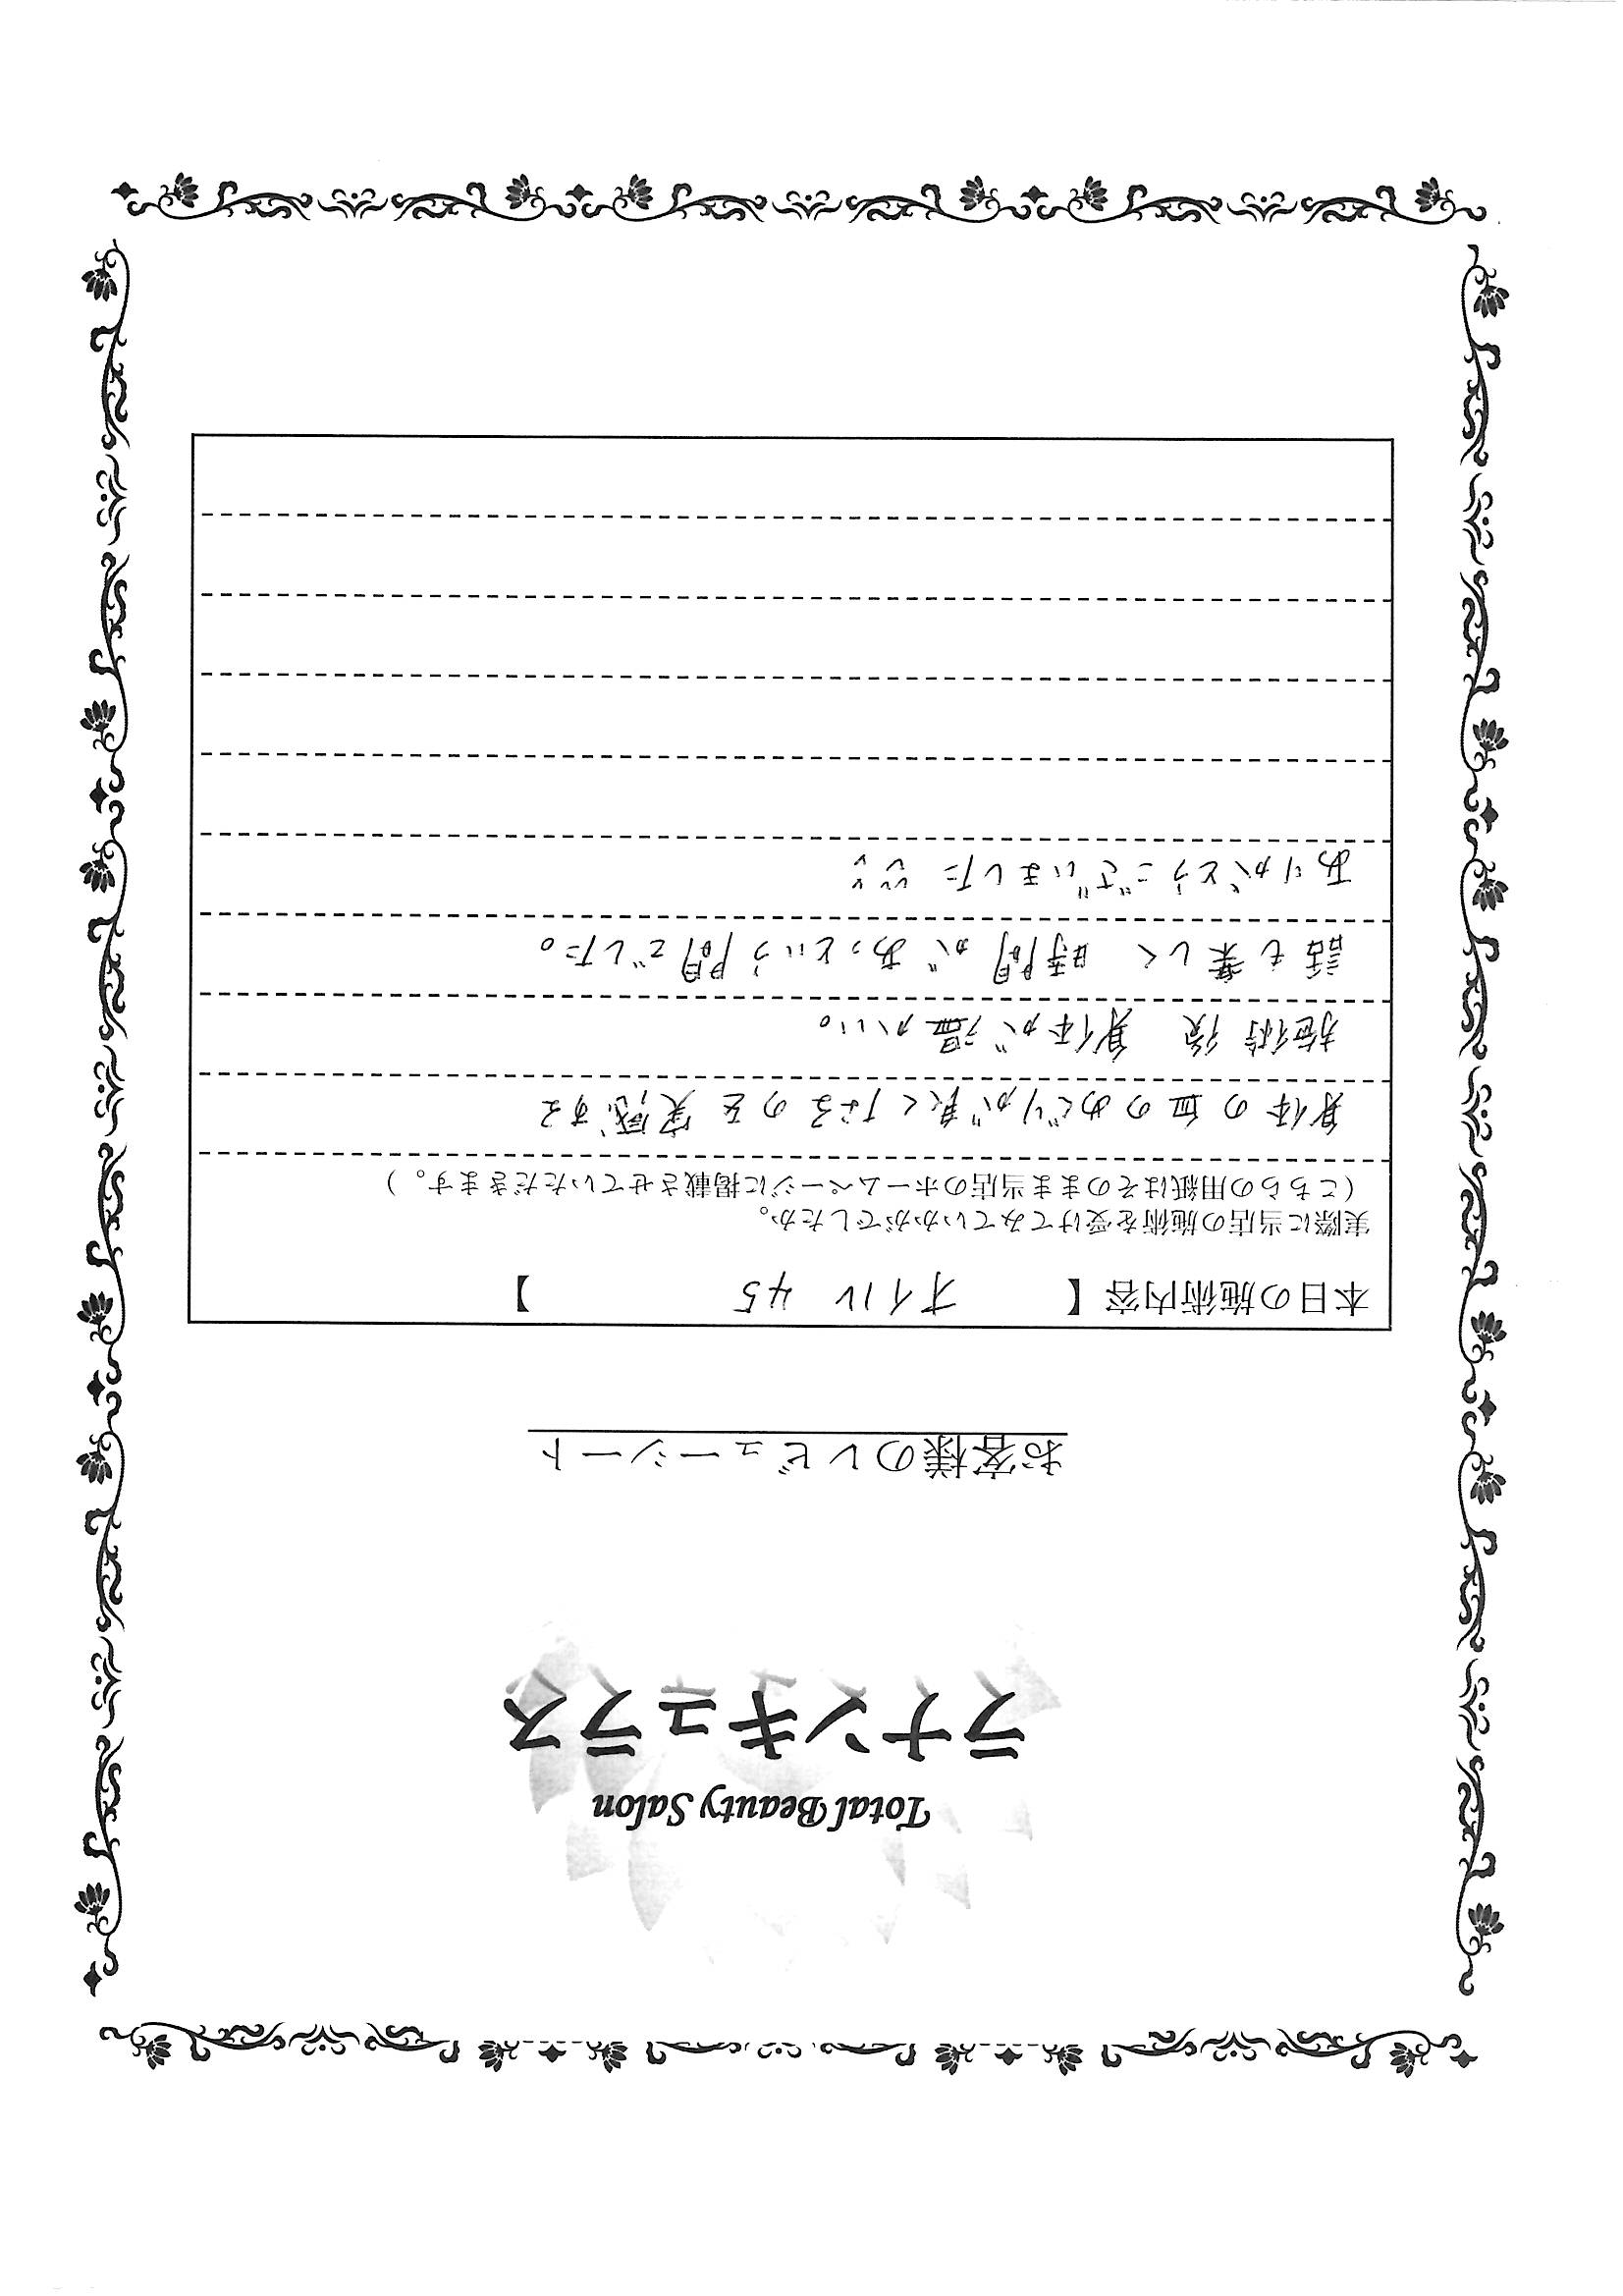 Total Beauty Salon
ラナンキュラス
お客様のレビューシート
本日の施術内容【 オイル 45 】
実際に当店の施術を受けてみていかがでしたか。
（こちらの用紙はそのまま当店のホームページに掲載させていただきます。）
身体の血のめぐりが良くなるのを実感する
施術後 身体が温かい。
話も楽しく 時間があっという間でした。
ありがとうございました